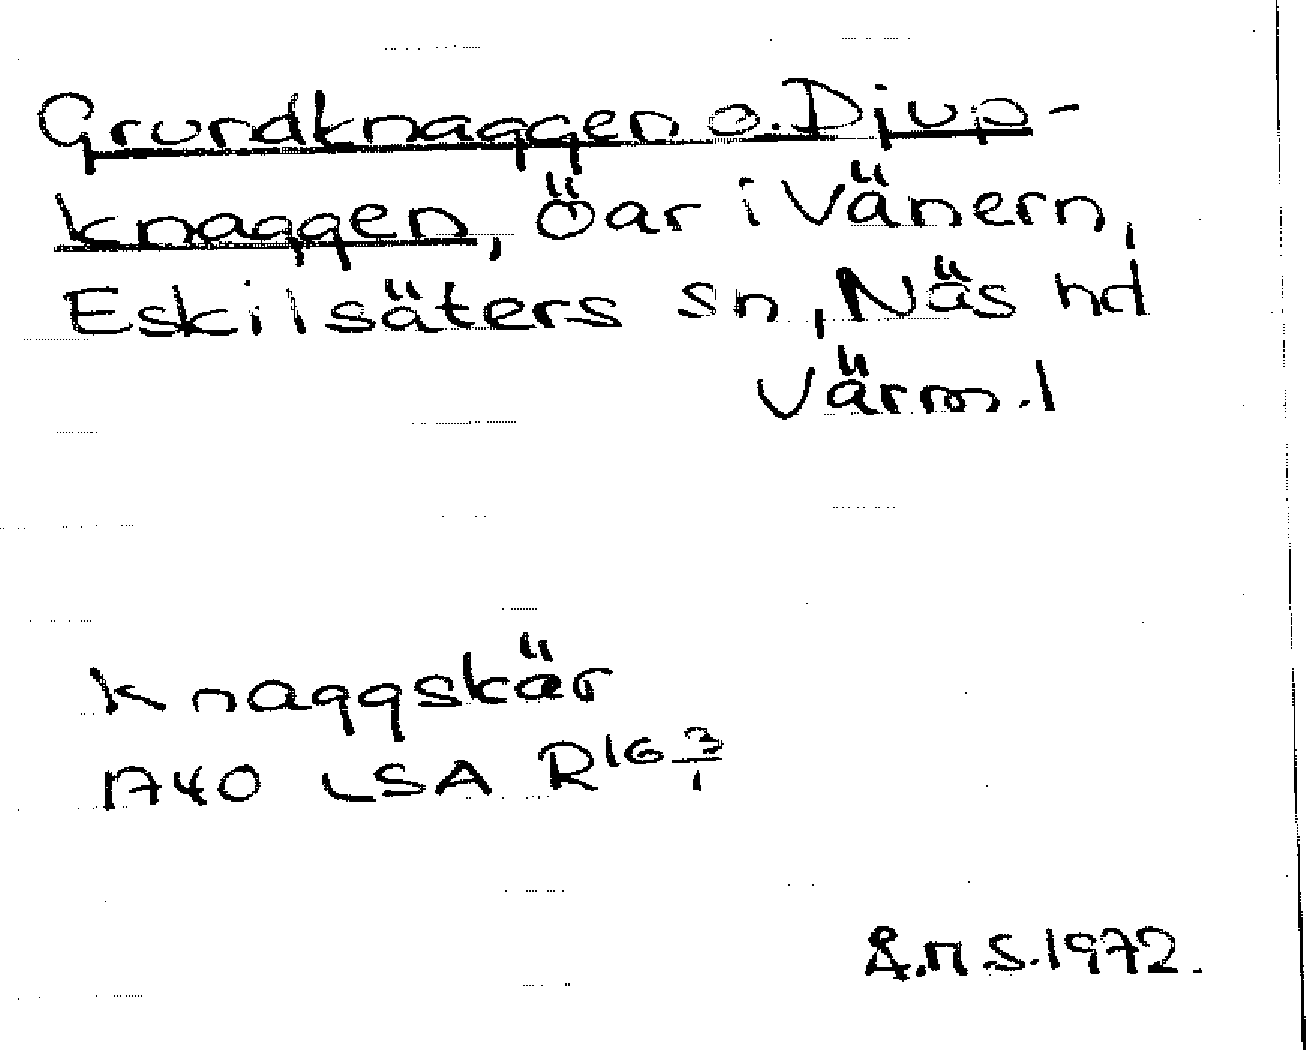 Grundknaggen o. Djup-
knaggen, Öar i Vänern,
Eskilsäters sn, Näs hd
Värml
Knaggskär
1740 LSA R16 3/1
Å.M S. 1972.